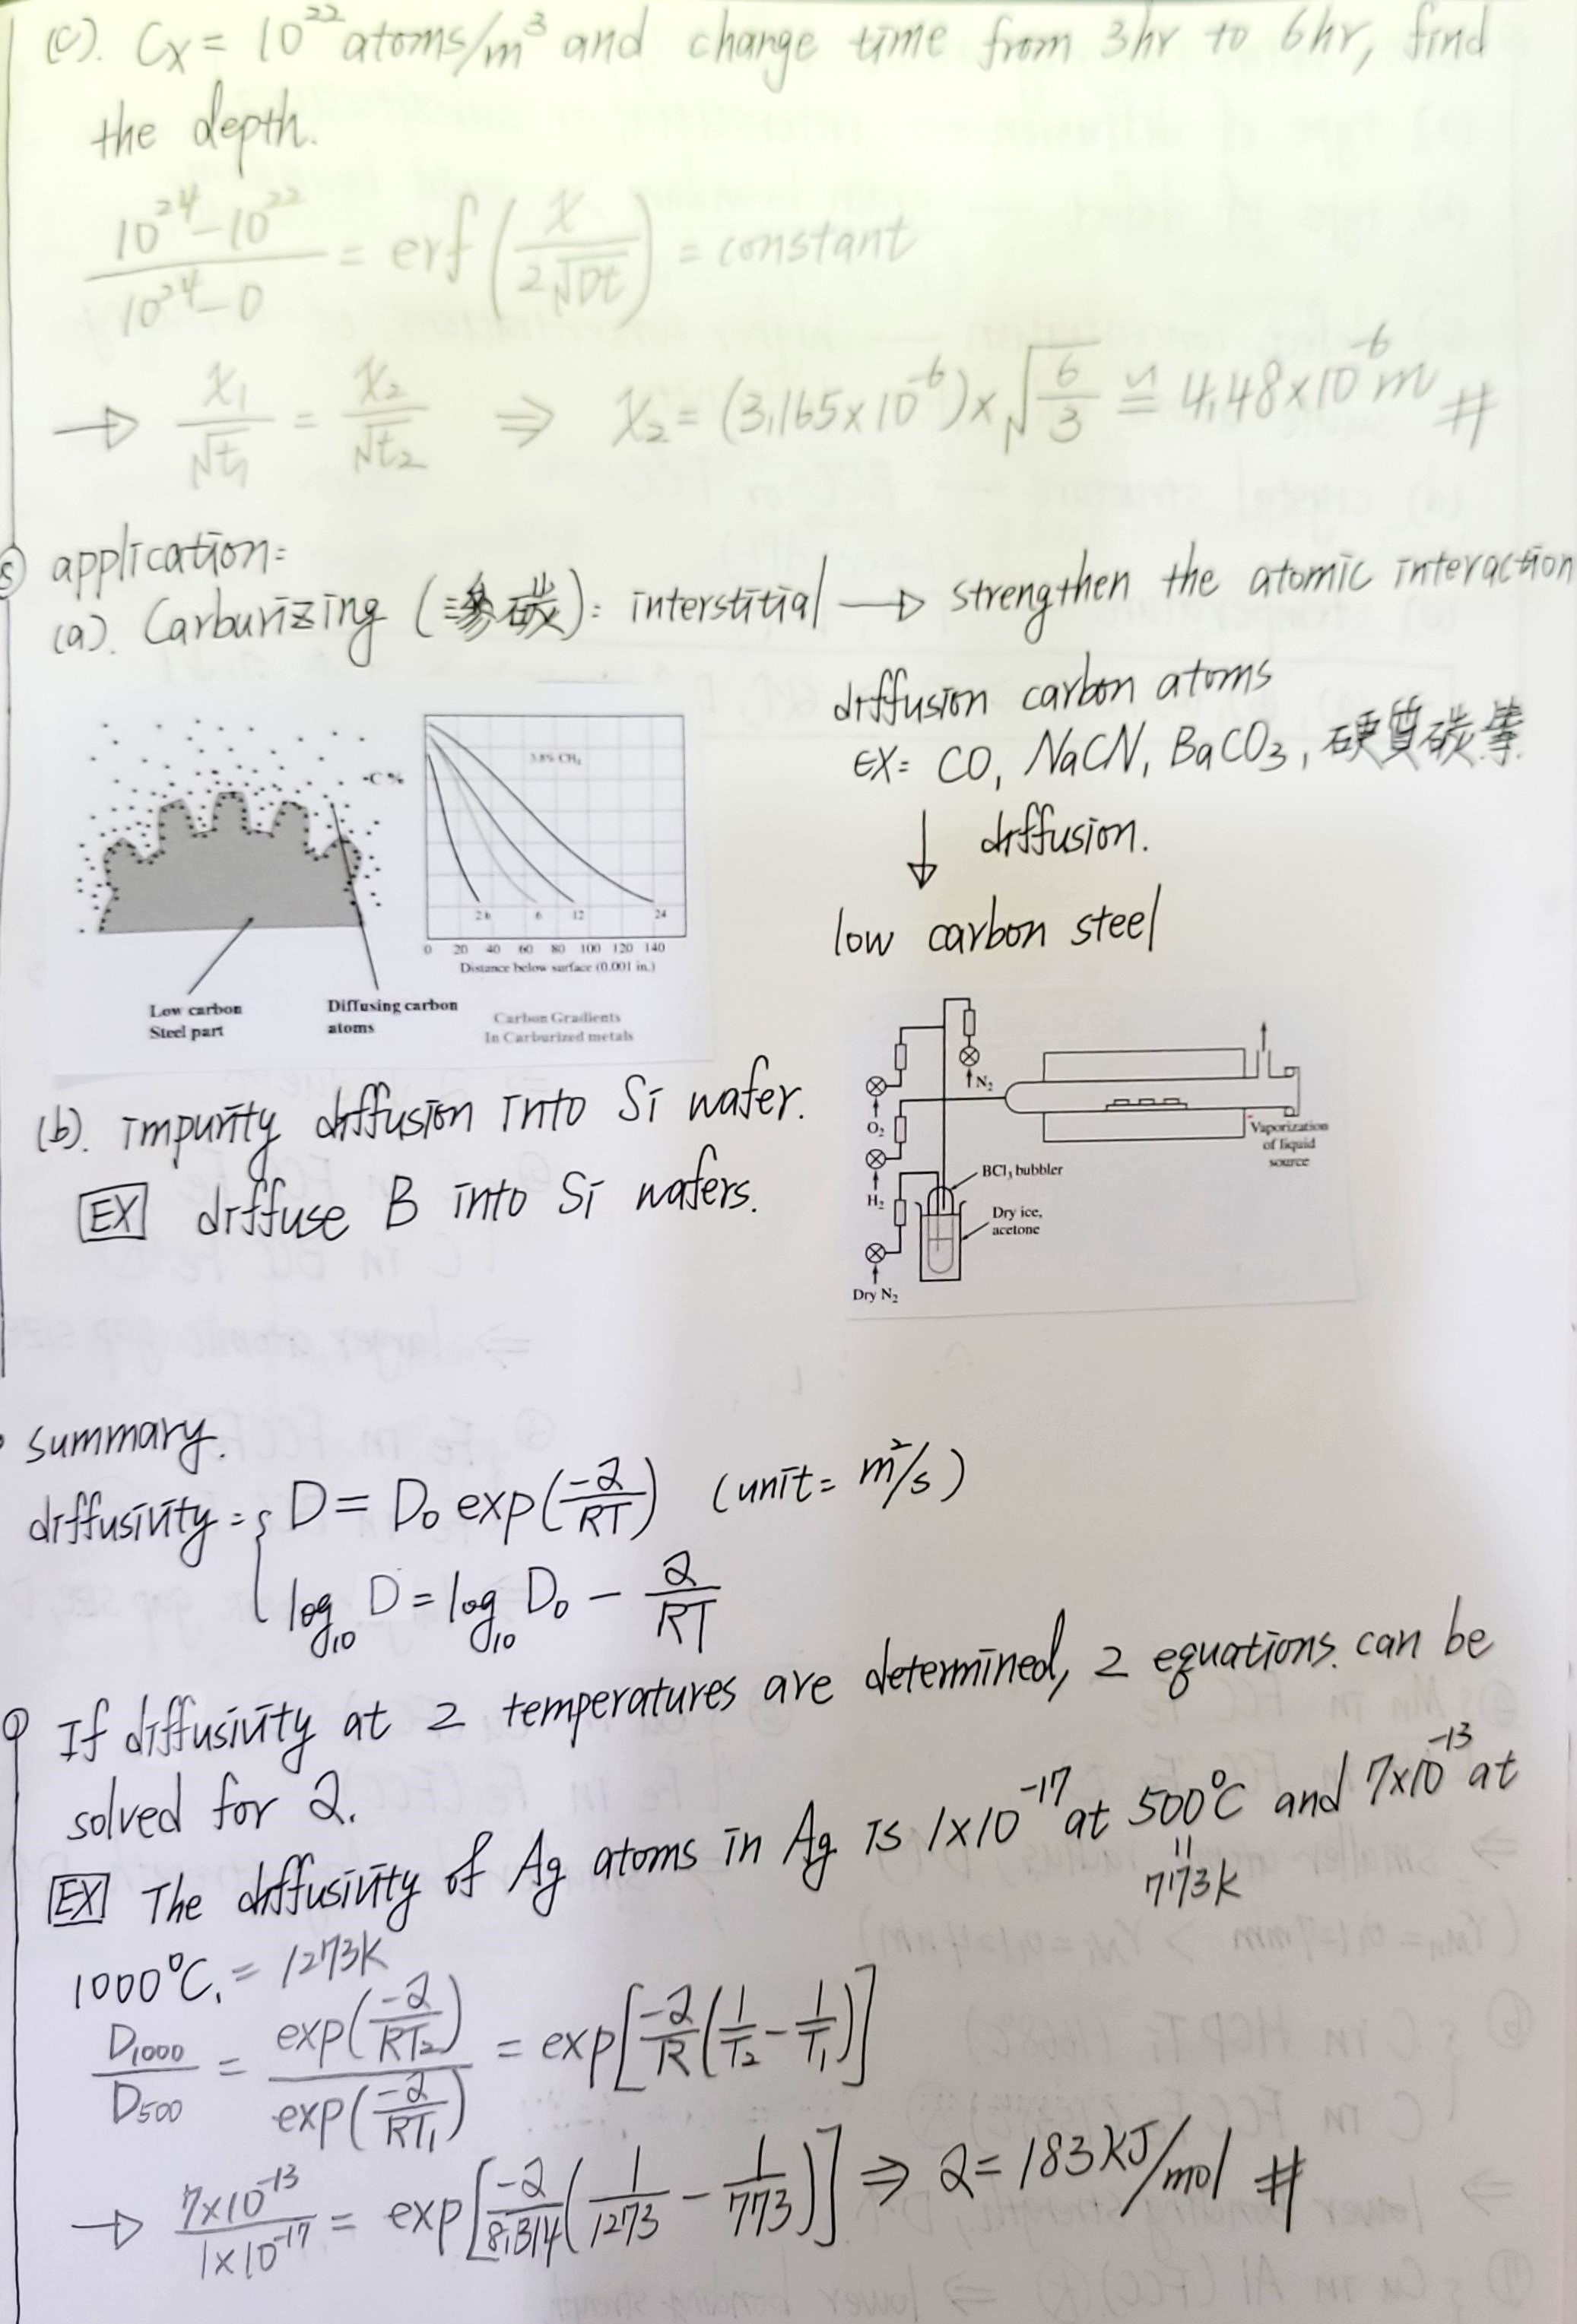 (c). Cx = 10²² atoms/m³ and change time from 3hr to 6hr, find
the depth.
(10²⁴ - 10²²) / (10²⁴ - 0) = erf(x / 2√Dt) = constant
→ x₁/√t₁ = x₂/√t₂ ⇒ x₂ = (3.165×10⁻⁶)×√(6/3) ≅ 4.48×10⁻⁶ m #
⑤ application:
(a). Carburizing (滲碳): interstitial → strengthen the atomic interaction
diffusion carbon atoms
EX: CO, NaCN, BaCO₃, 硬質碳等.
↓ diffusion.
low carbon steel
-C %
3.8% CH₄
2 h 6 12 24
0 20 40 60 80 100 120 140
Distance below surface (0.001 in.)
Low carbon
Steel part
Diffusing carbon
atoms
Carbon Gradients
In Carburized metals
(b). impurity diffusion into Si wafer.
EX diffuse B into Si wafers.
N₂
O₂
H₂
Dry N₂
BCl₃ bubbler
Dry ice,
acetone
Vaporization
of liquid
source
summary.
diffusivity = { D = D₀ exp(-Q/RT) (unit = m²/s)
log₁₀ D = log₁₀ D₀ - Q/RT
If diffusivity at 2 temperatures are determined, 2 equations can be
solved for Q.
EX The diffusivity of Ag atoms in Ag is 1×10⁻¹⁷ at 500°C and 7×10⁻¹³ at
= 773K
1000°C. = 1273K
D₁₀₀₀/D₅₀₀ = exp(-Q/RT₂) / exp(-Q/RT₁) = exp[-Q/R (1/T₂ - 1/T₁)]
→ 7×10⁻¹³ / 1×10⁻¹⁷ = exp[-Q/8.314 (1/1273 - 1/773)] ⇒ Q = 183 kJ/mol #